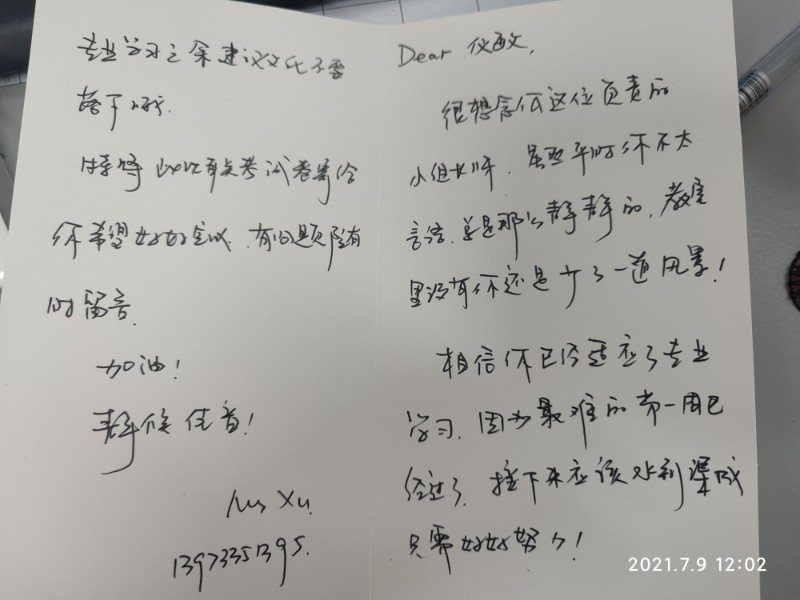 Dear 仪文,
很想念你这位负责的
小组长呀，虽然平时你不太
言语，总是那么静静的，教室
里没有你还是少了一道风景！
相信你已经适应了专业
学习，因为最难的第一周已
经过了，接下来应该水到渠成
只需好好努力！
专业学习之余建议文化不要
落下哦．
特将 这次联考试卷寄给
你希望好好尝试，有问题随
时留言．
加油！
静候佳音！
Ms Xu.
13973351395.
2021.7.9 12:02